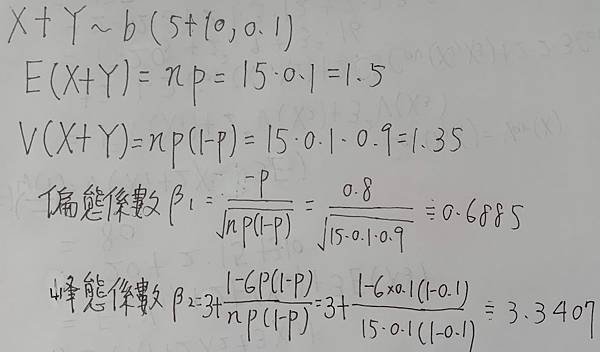 X+Y~b(5+10,0.1)
E(X+Y)=np=15·0.1=1.5
V(X+Y)=np(1-p)=15·0.1·0.9=1.35
偏態係數β₁=\frac{-p}{\sqrt{np(1-p)}}=\frac{0.8}{\sqrt{15·0.1·0.9}}≒0.6885
峰態係數β₂=3+\frac{1-6p(1-p)}{np(1-p)}=3+\frac{1-6×0.1(1-0.1)}{15·0.1(1-0.1)}≒3.3407